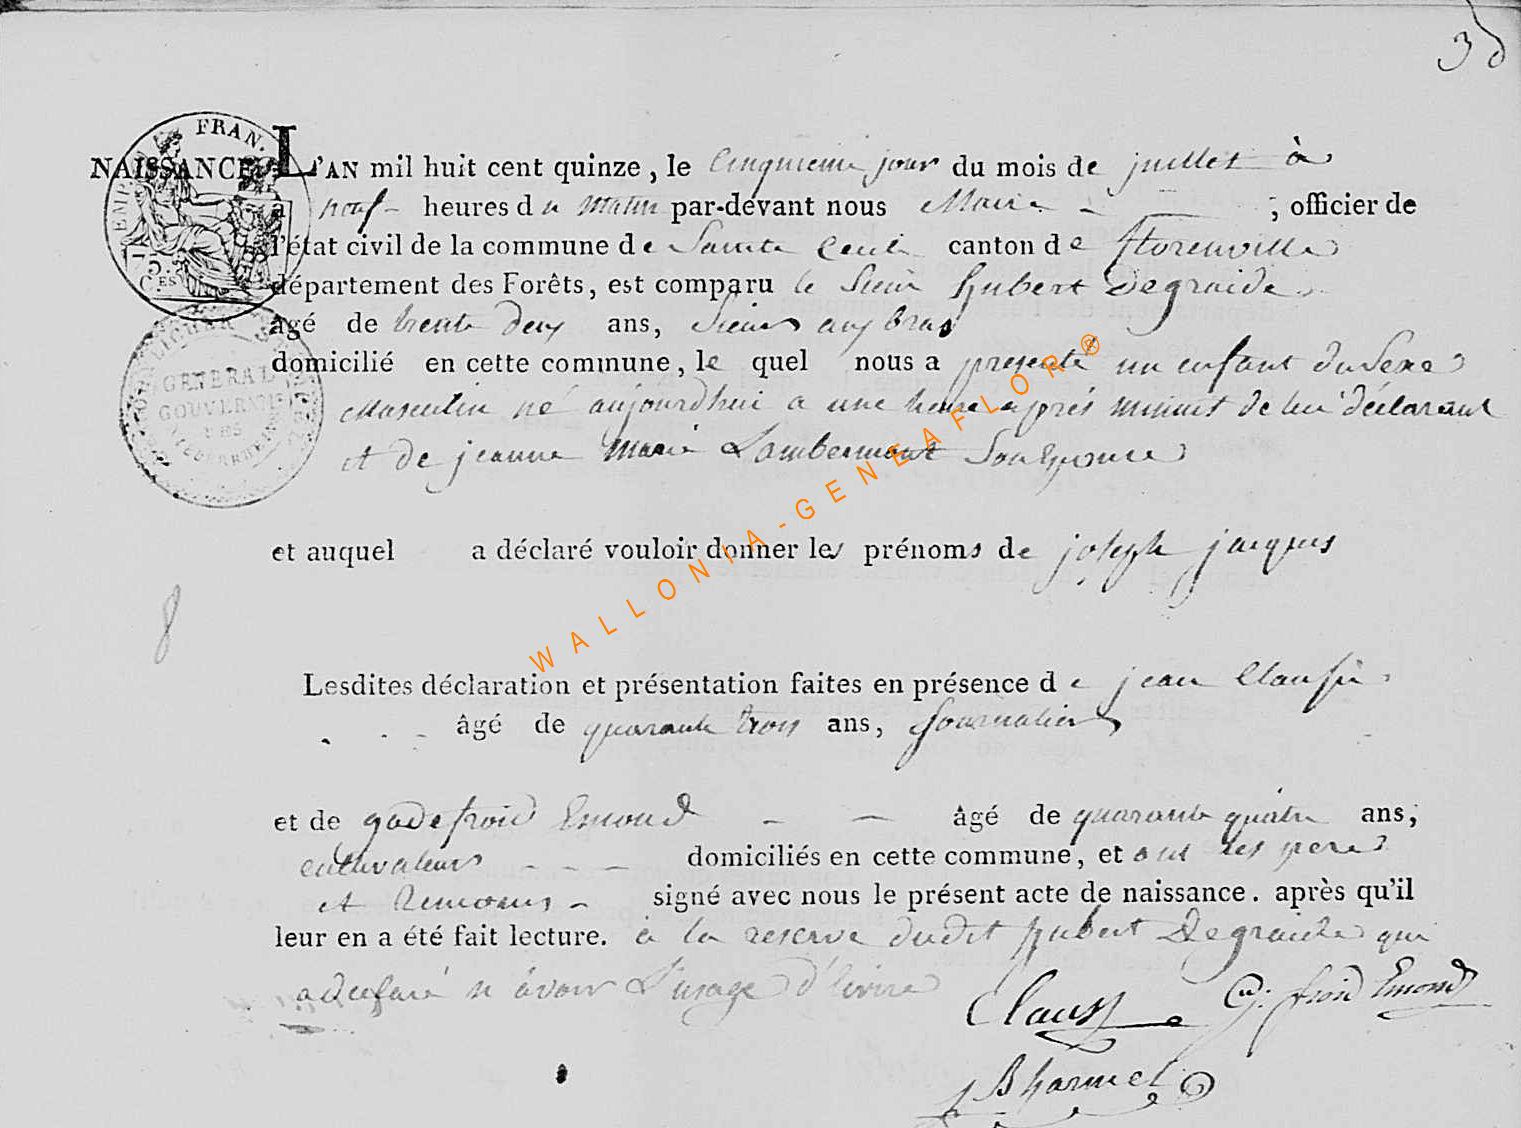 3
EMP. FRAN.
75.
CES
NAISSANCE. L'AN mil huit cent quinze, le Cinquieme jour du mois de juillet à
a neuf heures du matin par-devant nous Maire ; officier de
l'état civil de la commune de Sainte Cecile canton de florenville
département des Forêts, est comparu le Sieur hubert Degraide
âgé de trente deux ans, Sieur aux bras
domicilié en cette commune, le quel nous a presenté un enfant du Sexe
GENERAL
GOUVERN
DES
Masculin né aujourdhui a une heure après minuit de lui déclarant
et de jeanne Marie Lambermont Son Epouse
et auquel a déclaré vouloir donner les prénoms de joseph jacques
8
Lesdites déclaration et présentation faites en présence de jean Clausse
âgé de quarante trois ans, Journalier
et de godefroid Emond âgé de quarante quatre ans,
cultivateurs domiciliés en cette commune, et ont les pere
et temoins signé avec nous le présent acte de naissance. après qu'il
leur en a été fait lecture. à la reserve dudit hubert Degraide qui
a declaré n'avoir L'usage d'écrire
Clauss G: froid Emond
WALLONIA-GENEAFLOR®